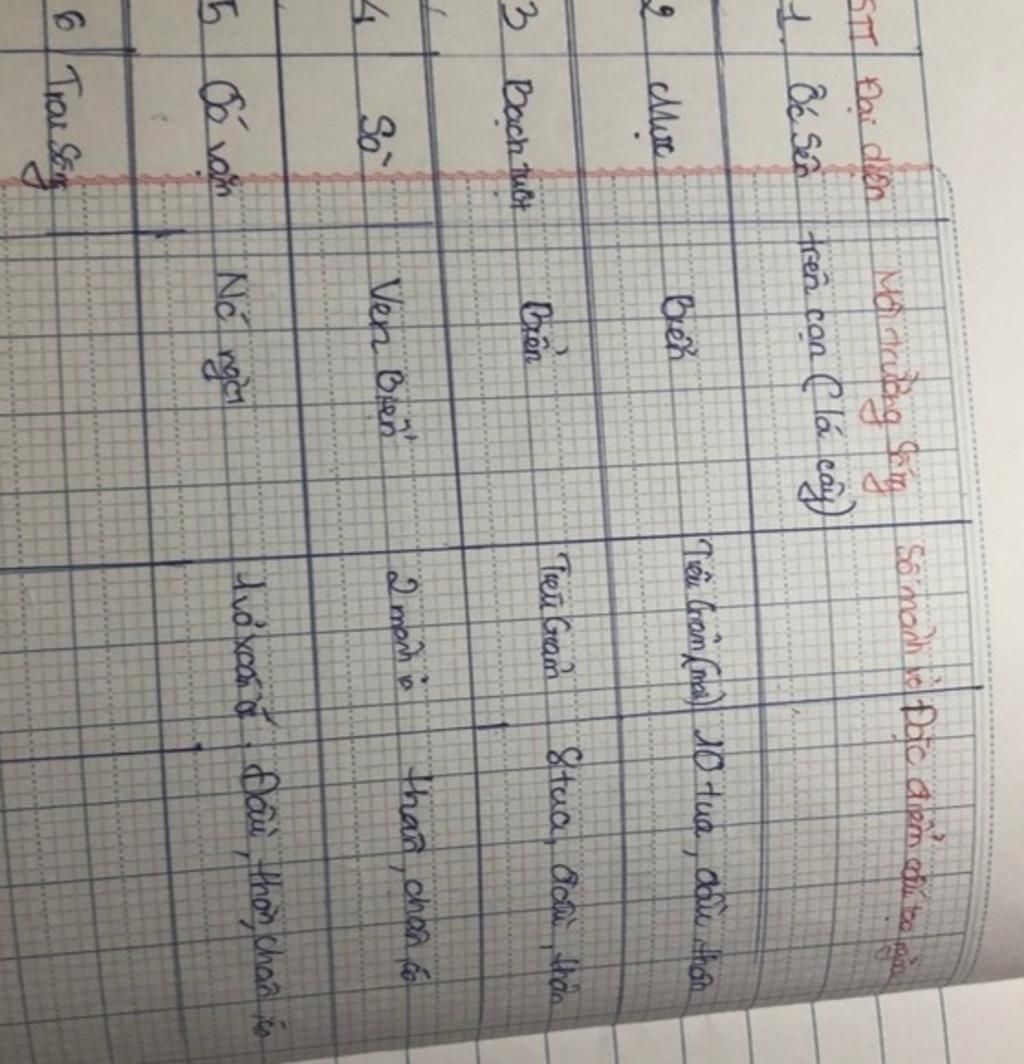 STT Đại diện Môi trường sống Số mảnh vỏ Đặc điểm cấu tạo ngoài
1 Ốc Sên trên cạn (lá cây)
2 Mực Biển Tiêu Giảm (mai) 10 tua, đầu, thân
3 Bạch tuột Biển Tiêu Giảm 8 tua, đầu, thân
4 Sò Ven Biển 2 mảnh thân, chân
5 Ốc vặn Nước ngọt 1 vỏ xoắn ốc Đầu, thân, chân
6 Trai Sông